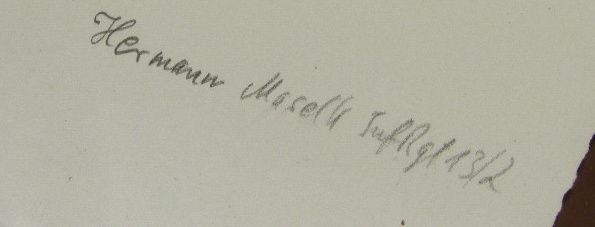 Hermann Maselk InfRgt 13/2